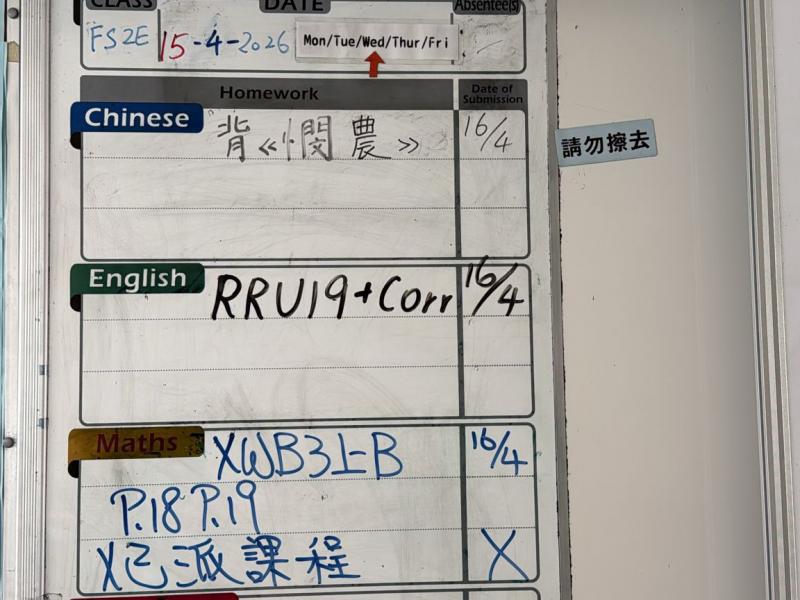 CLASS DATE Absentee(s)
FS2E 15-4-2026 Mon/Tue/Wed/Thur/Fri
Homework Date of Submission
Chinese 背《憫農》 16/4
請勿擦去
English RRU19+Corr 16/4
Maths XWB3上B 16/4
P.18 P.19
X已派課程 X